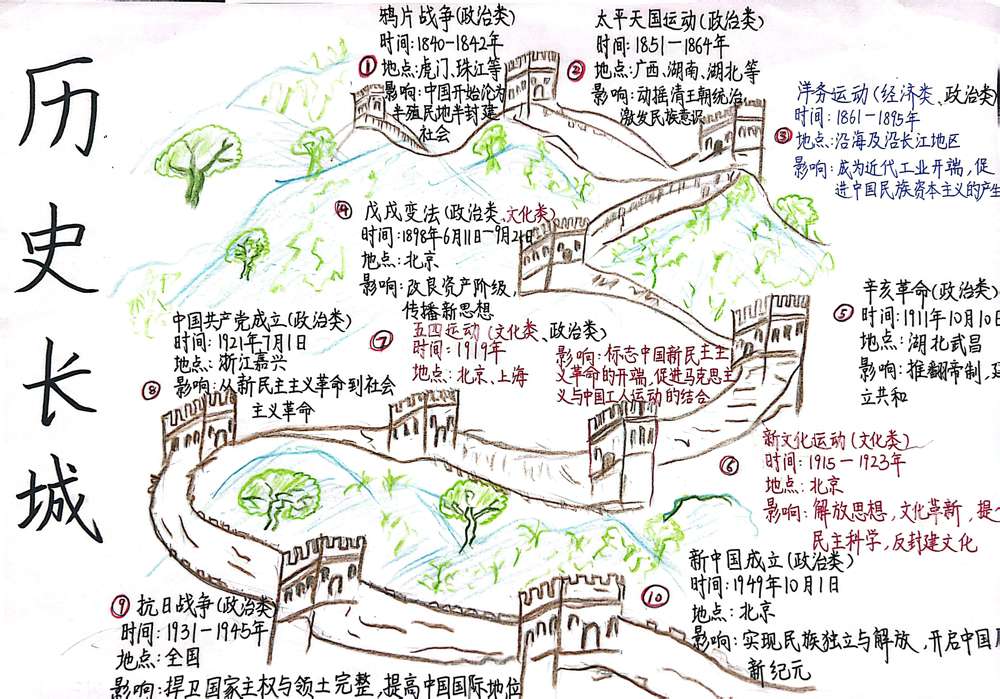 历史长城
① 鸦片战争(政治类)
时间:1840-1842年
地点:虎门、珠江等
影响:中国开始沦为
半殖民地半封建
社会
② 太平天国运动(政治类)
时间:1851—1864年
地点:广西、湖南、湖北等
影响:动摇清王朝统治,
激发民族意识
③ 洋务运动(经济类、政治类)
时间:1861-1895年
地点:沿海及沿长江地区
影响:成为近代工业开端,促
进中国民族资本主义的产生
④ 戊戌变法(政治类、文化类)
时间:1898年6月11日—9月21日
地点:北京
影响:改良资产阶级,
传播新思想
⑤ 辛亥革命(政治类)
时间:1911年10月10日
地点:湖北武昌
影响:推翻帝制,建
立共和
⑥ 新文化运动(文化类)
时间:1915—1923年
地点:北京
影响:解放思想,文化革新,提
民主科学,反封建文化
⑦ 五四运动(文化类、政治类)
时间:1919年
地点:北京、上海
影响:标志中国新民主主
义革命的开端,促进马克思主
义与中国工人运动的结合
⑧ 中国共产党成立(政治类)
时间:1921年7月1日
地点:浙江嘉兴
影响:从新民主主义革命到社会
主义革命
⑨ 抗日战争(政治类)
时间:1931—1945年
地点:全国
影响:捍卫国家主权与领土完整,提高中国国际地位
⑩ 新中国成立(政治类)
时间:1949年10月1日
地点:北京
影响:实现民族独立与解放,开启中国
新纪元